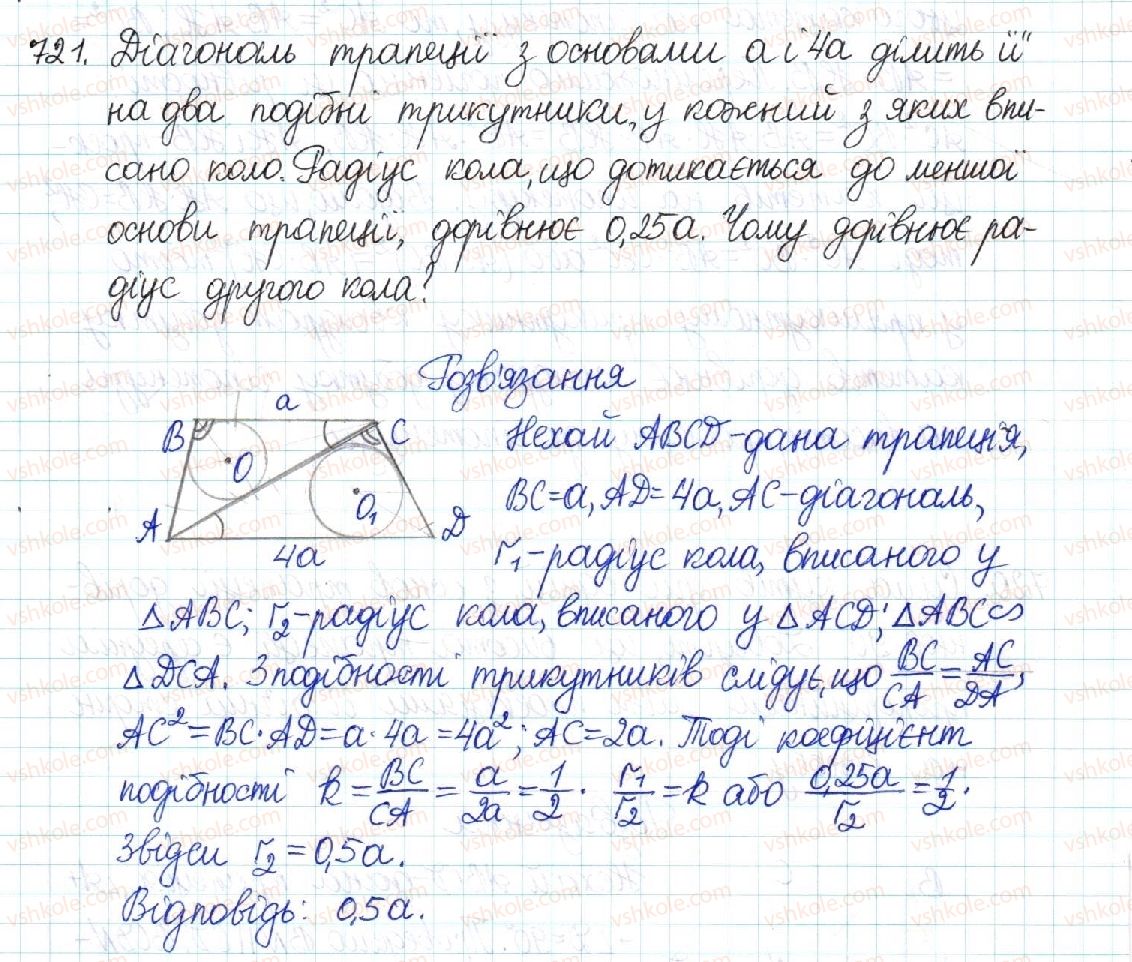 721. Діагональ трапеції з основами a і 4a ділить її
на два подібні трикутники, у кожний з яких впи-
сано коло. Радіус кола, що дотикається до меншої
основи трапеції, дорівнює 0,25a. Чому дорівнює ра-
діус другого кола?
Розв'язання
a
B C
O
O₁
A D
4a
Нехай ABCD - дана трапеція,
BC = a, AD = 4a, AC - діагональ,
r₁ - радіус кола, вписаного у
△ABC; r₂ - радіус кола, вписаного у △ACD; △ABC ∽
△DCA. З подібності трикутників слідує, що BC/CA = AC/DA,
AC² = BC · AD = a · 4a = 4a²; AC = 2a. Тоді коефіцієнт
подібності k = BC/CA = a/2a = 1/2. r₁/r₂ = k або 0,25a/r₂ = 1/2.
Звідси r₂ = 0,5a.
Відповідь: 0,5a.